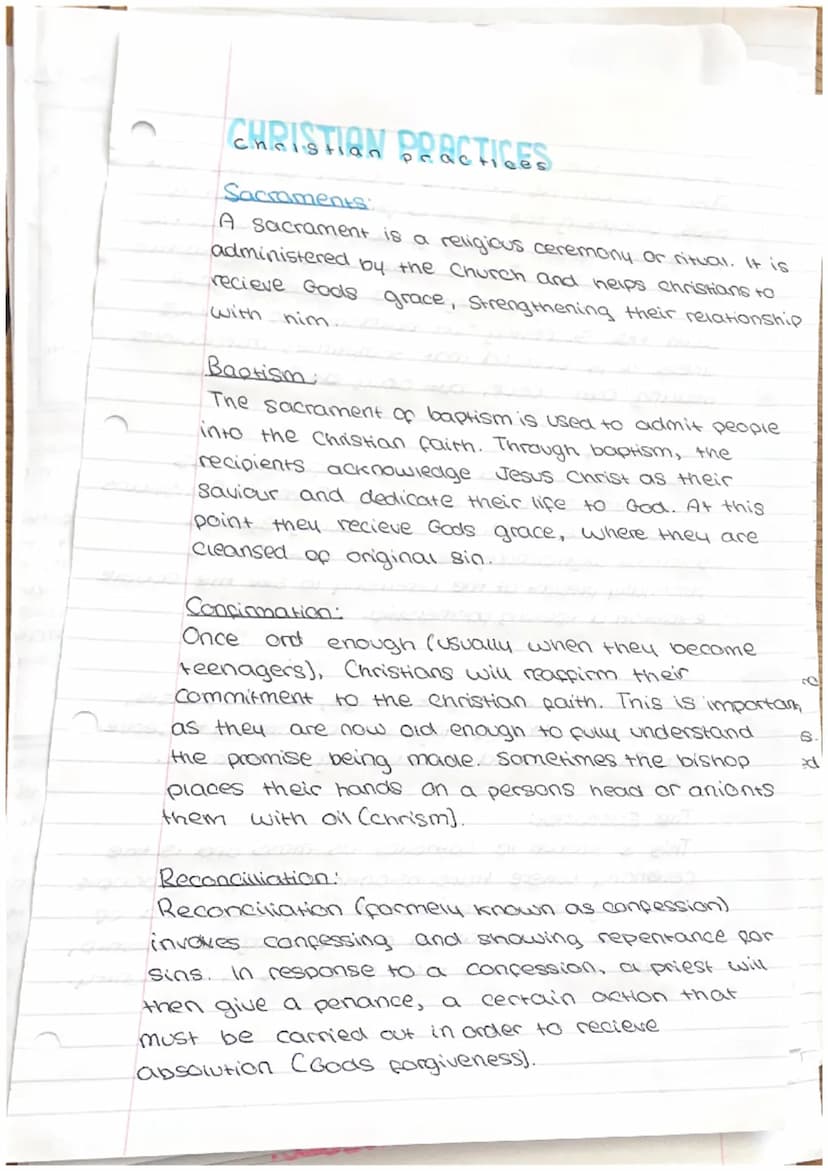 CHRISTIAN PRACTICES
christian practices
Sacraments:
A sacrament is a religious ceremony or ritual. It is
administered by the Church and helps christians to
recieve Gods grace, strengthening their relationship
with him.
Baptism:
The sacrament of baptism is used to admit people
into the Christian faith. Through baptism, the
recipients acknowledge Jesus Christ as their
saviour and dedicate their life to God. At this
point they recieve Gods grace, where they are
cleansed of original sin.
Confirmation:
Once old enough (usually when they become
teenagers), Christians will reaffirm their
commitment to the christian faith. This is important
as they are now old enough to fully understand
the promise being made. Sometimes the bishop
places their hands on a persons head or anionts
them with oil (chrism).
Reconciliation:
Reconciliation (formely known as confession)
involves confessing and showing repentance for
sins. In response to a confession, a priest will
then give a penance, a certain action that
must be carried out in order to recieve
absolution (Gods forgiveness).